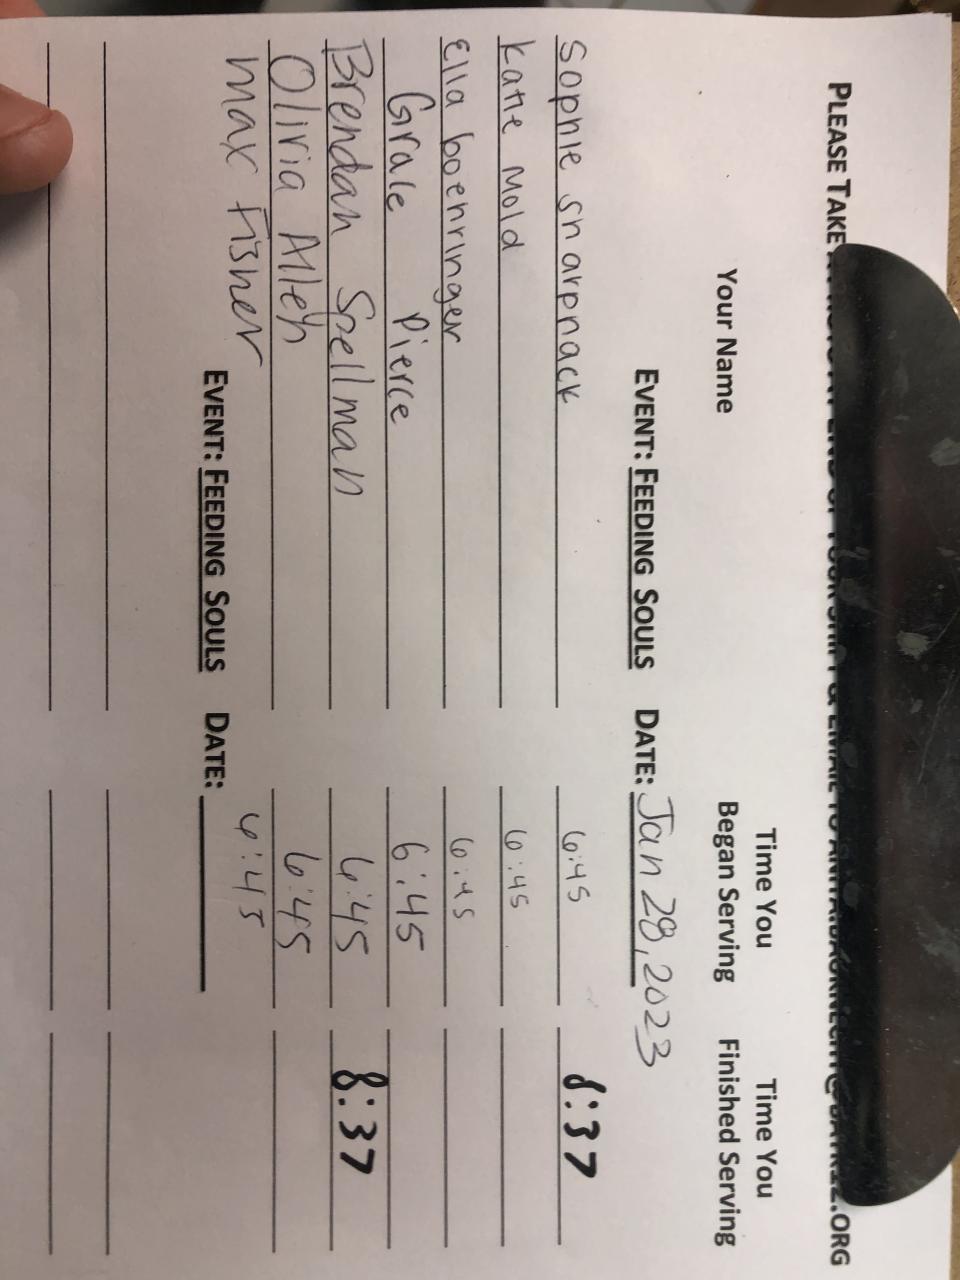 PLEASE TAKE
.ORG
Your Name
Time You Began Serving
Time You Finished Serving
EVENT: FEEDING SOULS DATE: Jan 28, 2023
Sophie Sharpnack 6:45 8:37
Katie Mold 6:45
Ella boehringer 6:45
Grale Pierce 6:45
Brendan Spellman 6:45 8:37
Olivia Allen 6:45
Max Fisher 6:45
EVENT: FEEDING SOULS DATE: